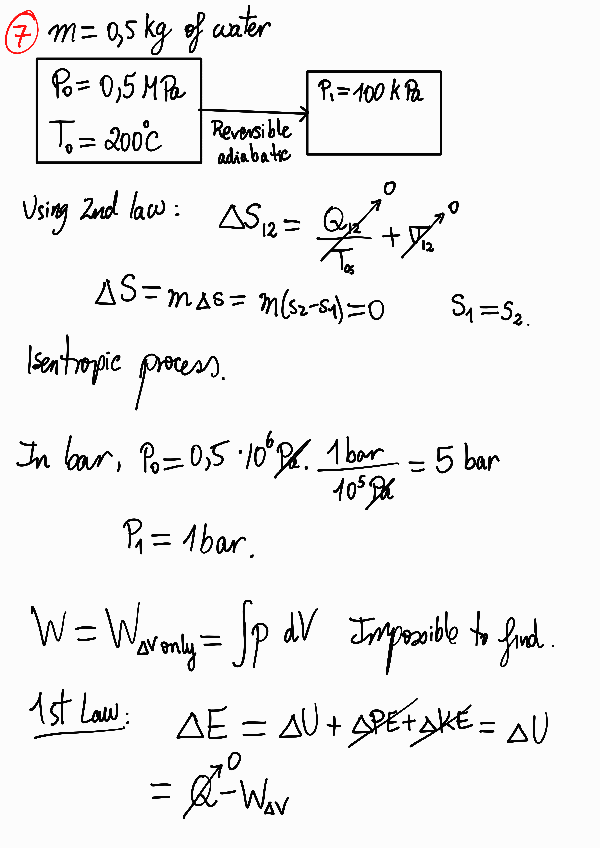 7 m = 0,5 kg of water
P₀ = 0,5 MPa
T₀ = 200°C
Reversible
adiabatic
P₁ = 100 kPa
Using 2nd law: ΔS₁₂ = Q₁₂/T₀ₛ + σ₁₂ 0 0
ΔS = mΔs = m(s₂-s₁) = 0 S₁ = S₂.
Isentropic process.
In bar, P₀ = 0,5 · 10⁶ Pa · 1 bar/10⁵ Pa = 5 bar
P₁ = 1 bar.
W = W_ΔV only = ∫p dV Impossible to find.
1st Law: ΔE = ΔU + ΔPE + ΔKE = ΔU
= Q 0 - W_ΔV